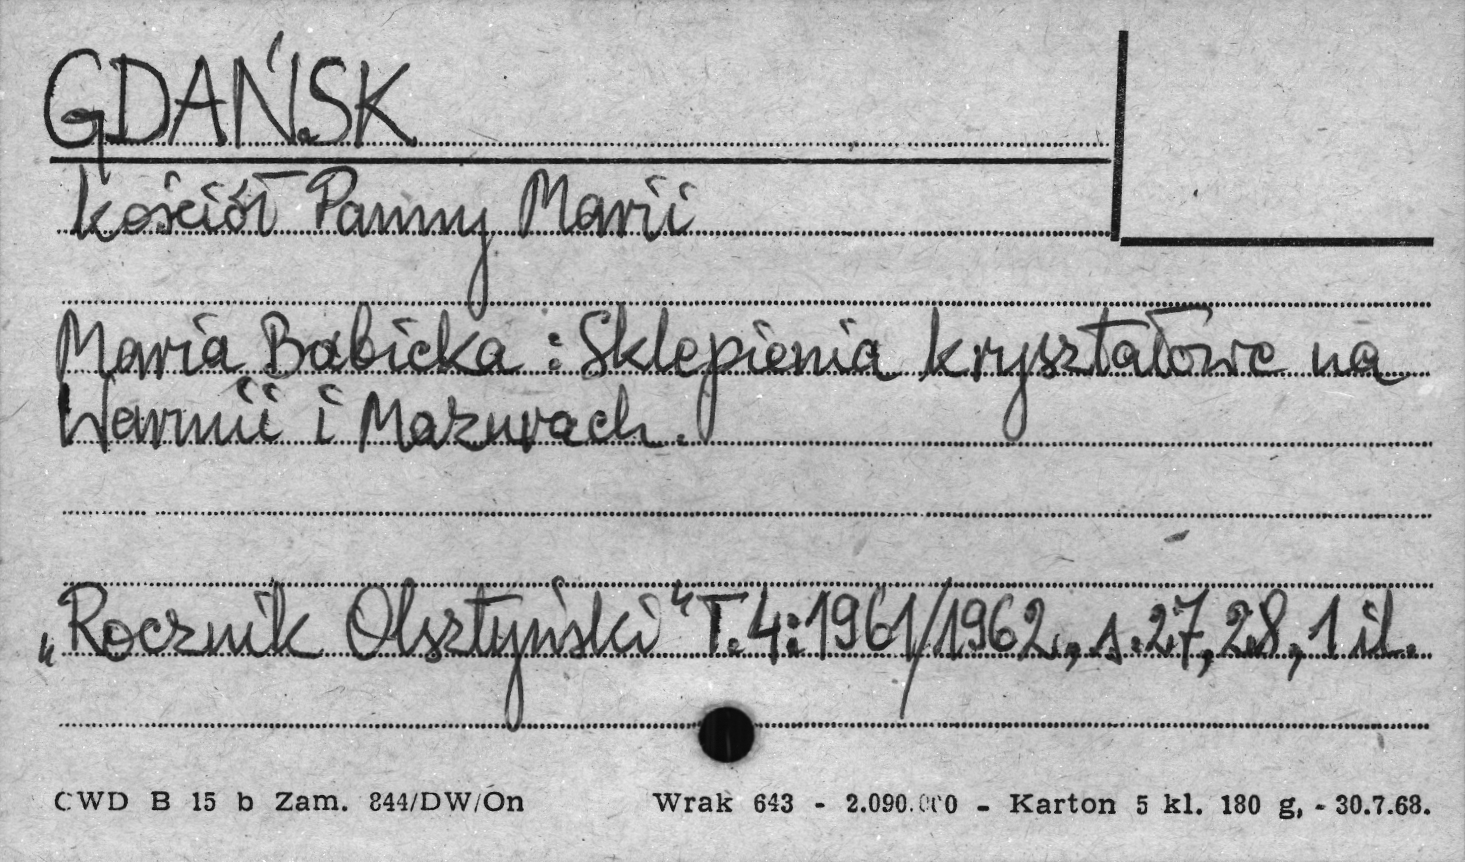 GDAŃSK
Kościół Panny Marii
Maria Babicka : Sklepienia kryształowe na
Warmii i Mazurach.
„Rocznik Olsztyński" T.4:1961/1962, s.27,28, 1 il.
CWD B 15 b Zam. 844/DW/On Wrak 643 - 2.090.000 - Karton 5 kl. 180 g, - 30.7.68.